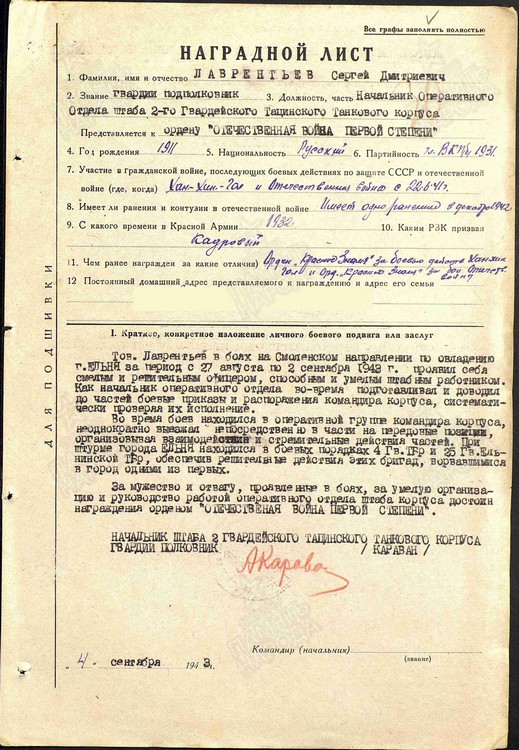 Все графы заполнять полностью
НАГРАДНОЙ ЛИСТ
1. Фамилия, имя и отчество ЛАВРЕНТЬЕВ Сергей Дмитриевич
2. Звание гвардии подполковник 3. Должность, часть Начальник Оперативного
Отдела штаба 2-го Гвардейского Тацинского Танкового корпуса
Представляется к ордену "ОТЕЧЕСТВЕННАЯ ВОЙНА ПЕРВОЙ СТЕПЕНИ"
4. Год рождения 1911 5. Национальность Русский 6. Партийность чл. ВКП(б) 1931.
7. Участие в гражданской войне, последующих боевых действиях по защите СССР и отечественной
войне (где, когда) Хан-хин-гол и Отечественная война с 22.6.41г.
8. Имеет ли ранения и контузии в отечественной войне Имеет одно ранение в декабре 1942
9. С какого времени в Красной Армии 1932 10. Каким РЗК призван
Кадровый
11. Чем ранее награжден за какие отличия) Орден "Красное Знамя" за боевые действия Хан-хин
гол и Орд. "Красное Знамя" за бои Отечеств.
войны
12 Постоянный домашний адрес представляемого к награждению и адрес его семьи
ДЛЯ ПОДШИВКИ
I. Краткое, конкретное изложение личного боевого подвига или заслуг
Тов. Лаврентьев в боях на Смоленском направлении по овладению
г.ЕЛЬНЯ за период с 27 августа по 2 сентября 1943 г. проявил себя
смелым и решительным офицером, способным и умелым штабным работником.
Как начальник оперативного отдела во-время подготавливал и доводил
до частей боевые приказы и распоряжения командира корпуса, системати-
чески проверял их исполнение.
Во время боев находился в оперативной группе командира корпуса,
неоднократно выезжал непосредственно в части на передовые позиции,
организовывая взаимодействия и стремительные действия частей. При
штурме города ЕЛЬНЯ находился в боевых порядках 4 Гв.ТБр и 25 Гв.Ель-
нинской ТБр, обеспечив решительные действия этих бригад, ворвавшимися
в город одними из первых.
За мужество и отвагу, проявленные в боях, за умелую организа-
цию и руководство работой оперативного отдела штаба корпуса достоин
награждения орденом "ОТЕЧЕСТВЕННАЯ ВОЙНА ПЕРВОЙ СТЕПЕНИ".
НАЧАЛЬНИК ШТАБА 2 ГВАРДЕЙСКОГО ТАЦИНСКОГО ТАНКОВОГО КОРПУСА
ГВАРДИИ ПОЛКОВНИК / КАРАВАН /
АКараван
Командир (начальник)
(звание)
"4." сентября 1943г.